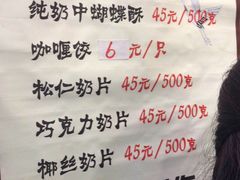 纯奶中蝴蝶酥 45元/500克
咖喱饺 6元/只
松仁奶片 45元/500克
巧克力奶片 45元/500克
椰丝奶片 45元/500克